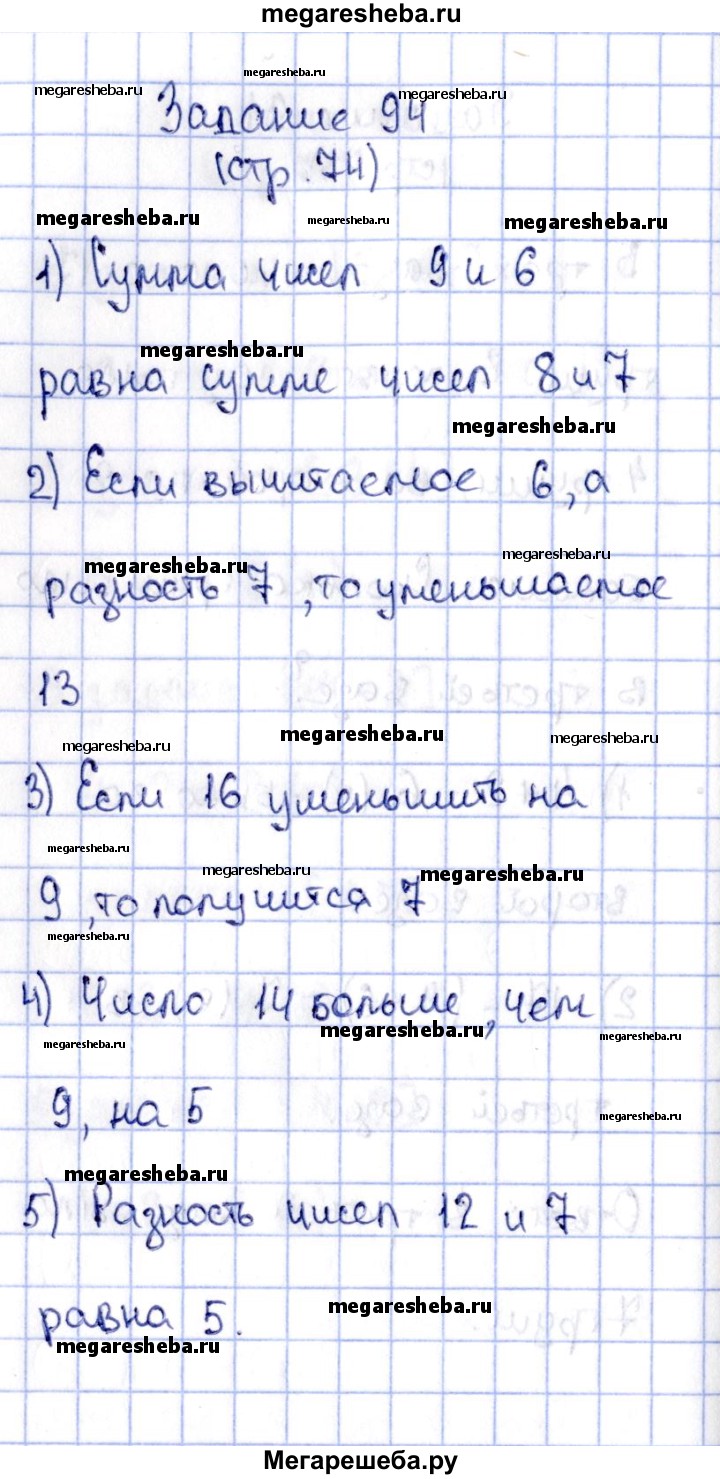 megaresheba.ru
megaresheba.ru
megaresheba.ru megaresheba.ru
Задание 94
(стр. 74)
megaresheba.ru megaresheba.ru megaresheba.ru
1) Сумма чисел 9 и 6
megaresheba.ru
равна сумме чисел 8 и 7
megaresheba.ru
2) Если вычитаемое 6, а
megaresheba.ru megaresheba.ru
разность 7, то уменьшаемое
13
megaresheba.ru megaresheba.ru megaresheba.ru
3) Если 16 уменьшить на
megaresheba.ru
megaresheba.ru megaresheba.ru
9, то получится 7
megaresheba.ru
4) Число 14 больше, чем
megaresheba.ru megaresheba.ru megaresheba.ru
9, на 5
megaresheba.ru
megaresheba.ru
5) Разность чисел 12 и 7
равна 5.
megaresheba.ru
megaresheba.ru
Мегарешеба.ру